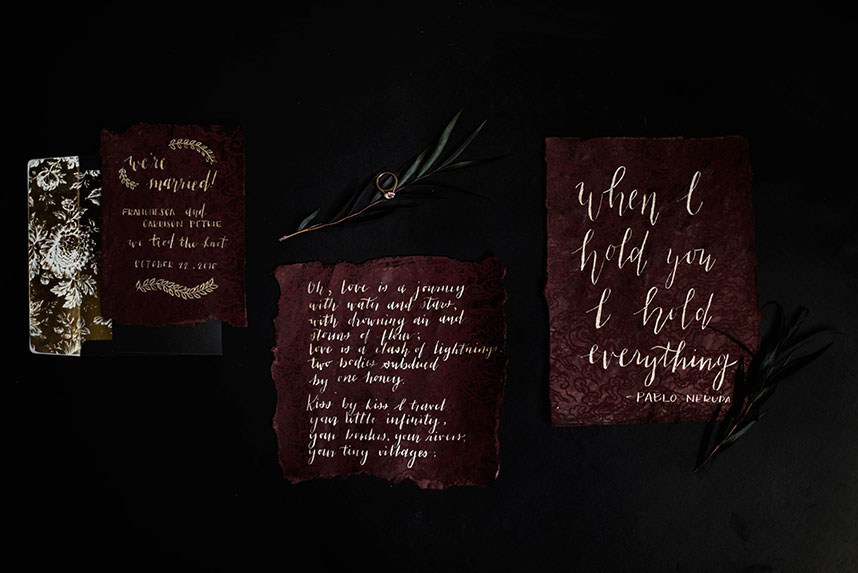 we're
married!
FRANCHESCA and
GARRISON PETRIE
we tied the knot
OCTOBER 22, 2015
Oh, love is a journey
with water and stars,
with drowning air and
storms of flour;
love is a clash of lightnings,
two bodies subdued
by one honey.
Kiss by kiss I travel
your little infinity,
your borders, your rivers,
your tiny villages;
when I
hold you
I hold
everything
- PABLO NERUDA